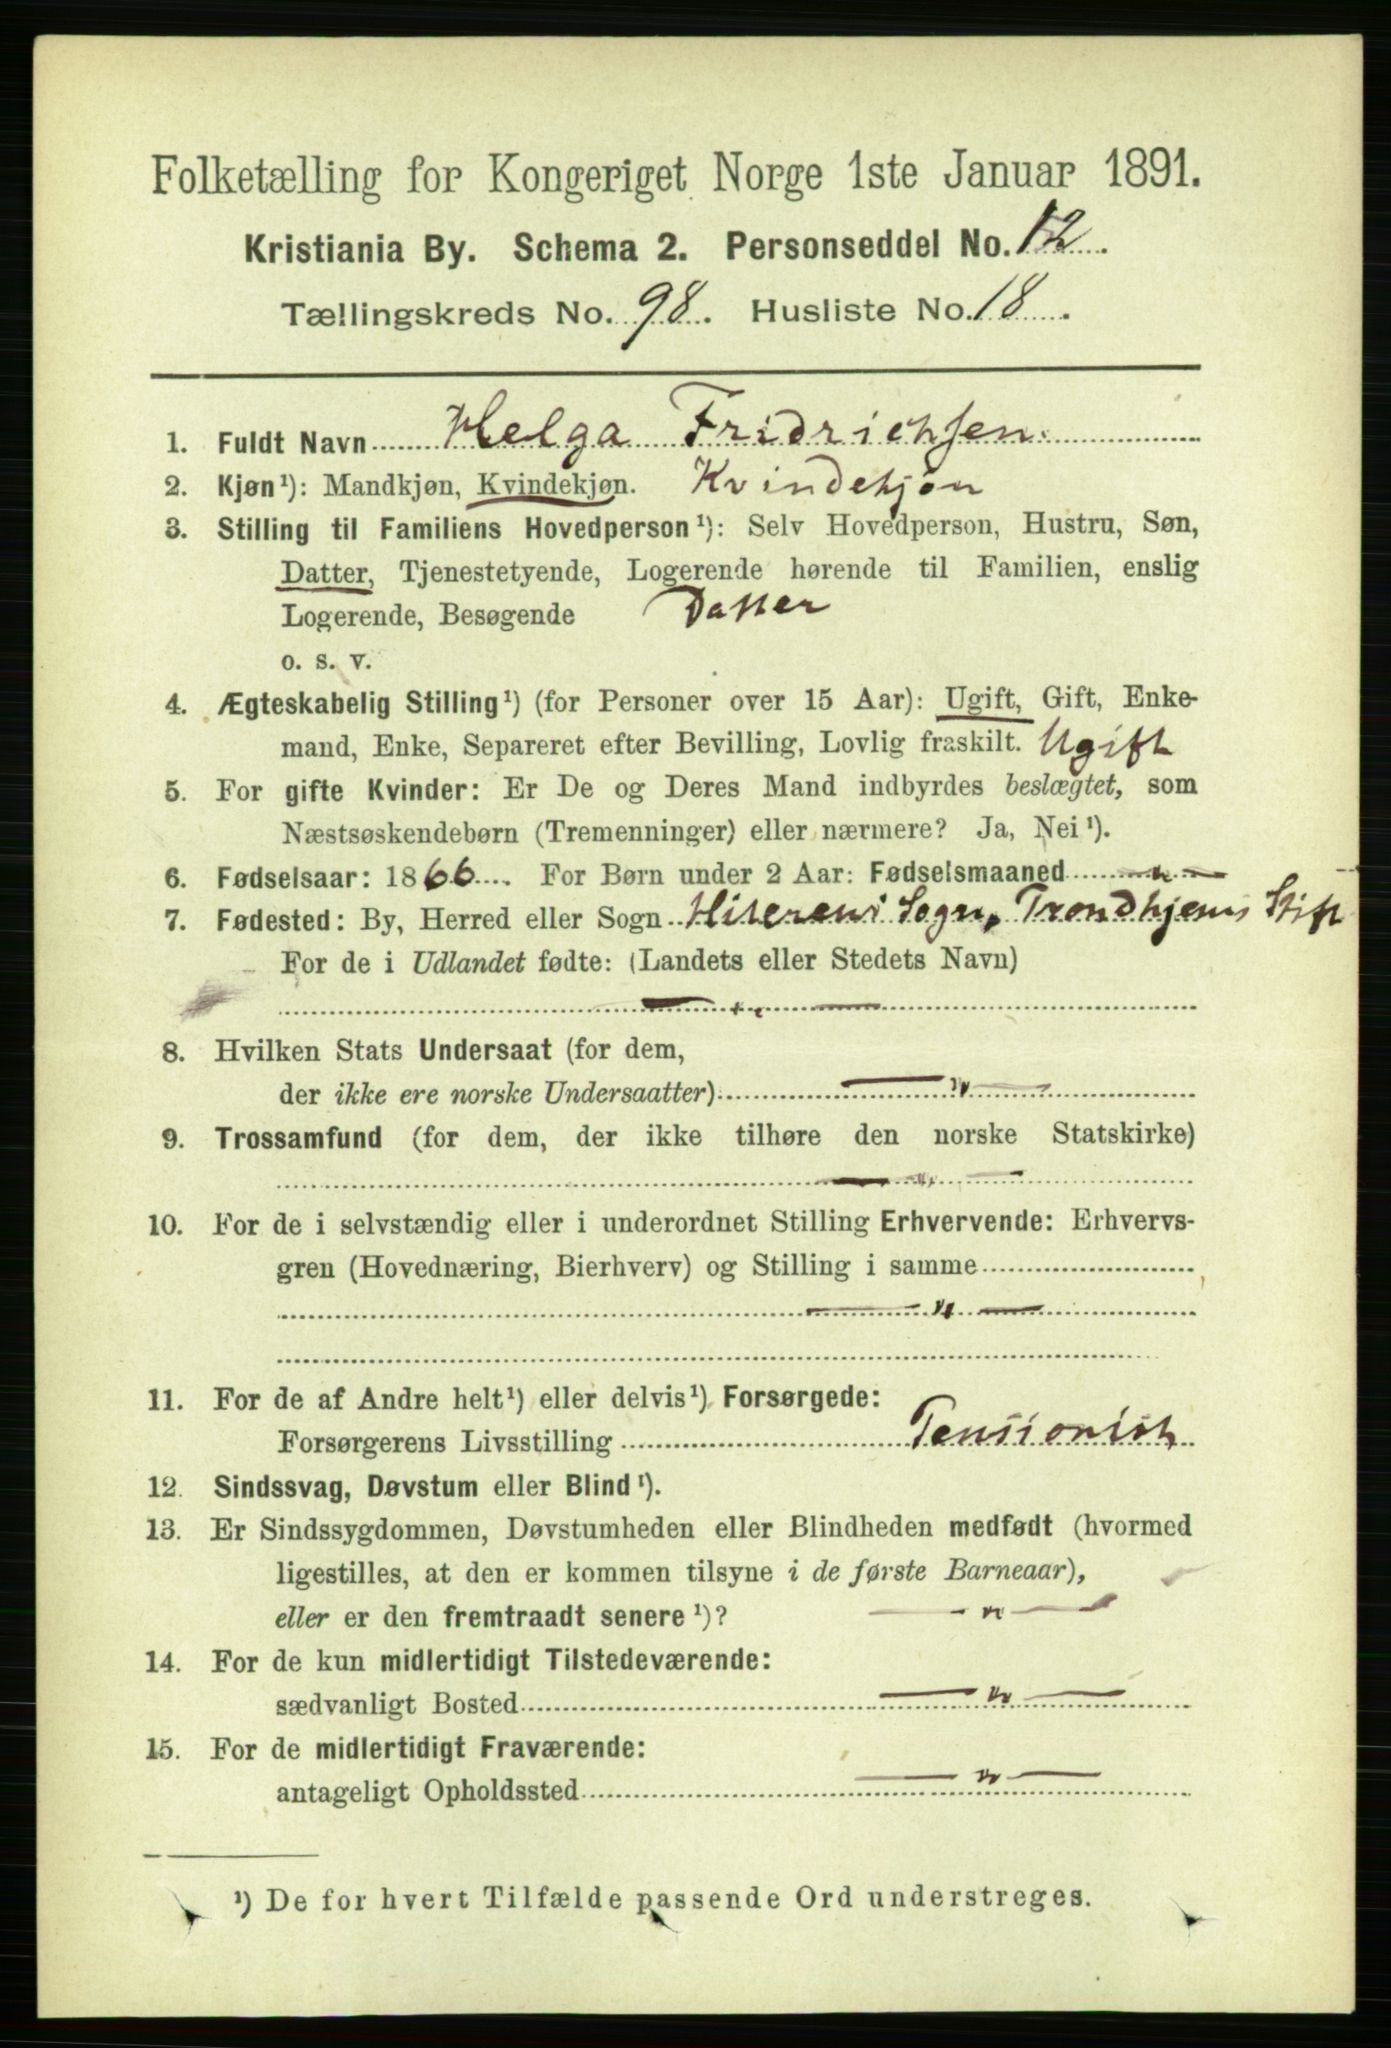 Folketælling for Kongeriget Norge 1ste Januar 1891.
Kristiania By. Schema 2. Personseddel No. 12.
Tællingskreds No. 98. Husliste No. 18.
1. Fuldt Navn Helga Fridrichsen.
2. Kjøn¹): Mandkjøn, Kvindekjøn. Kvindekjøn
3. Stilling til Familiens Hovedperson¹): Selv Hovedperson, Hustru, Søn,
Datter, Tjenestetyende, Logerende hørende til Familien, enslig
Logerende, Besøgende Datter
o. s. v.
4. Ægteskabelig Stilling¹) (for Personer over 15 Aar): Ugift, Gift, Enke-
mand, Enke, Separeret efter Bevilling, Lovlig fraskilt. Ugift
5. For gifte Kvinder: Er De og Deres Mand indbyrdes beslægtet, som
Næstsøskendebørn (Tremenninger) eller nærmere? Ja, Nei¹).
6. Fødselsaar: 1866. For Børn under 2 Aar: Fødselsmaaned — „ —
7. Fødested: By, Herred eller Sogn Hiterens Sogn, Trondhjems Stift
For de i Udlandet fødte: (Landets eller Stedets Navn)
— „ —
8. Hvilken Stats Undersaat (for dem,
der ikke ere norske Undersaatter) — „ —
9. Trossamfund (for dem, der ikke tilhøre den norske Statskirke)
— „ —
10. For de i selvstændig eller i underordnet Stilling Erhvervende: Erhvervs-
gren (Hovednæring, Bierhverv) og Stilling i samme
— „ —
11. For de af Andre helt¹) eller delvis¹) Forsørgede:
Forsørgerens Livsstilling Pensionist
12. Sindssvag, Døvstum eller Blind¹).
13. Er Sindssygdommen, Døvstumheden eller Blindheden medfødt (hvormed
ligestilles, at den er kommen tilsyne i de første Barneaar),
eller er den fremtraadt senere¹)? — „ —
14. For de kun midlertidigt Tilstedeværende:
sædvanligt Bosted — „ —
15. For de midlertidigt Fraværende:
antageligt Opholdssted — „ —
¹) De for hvert Tilfælde passende Ord understreges.